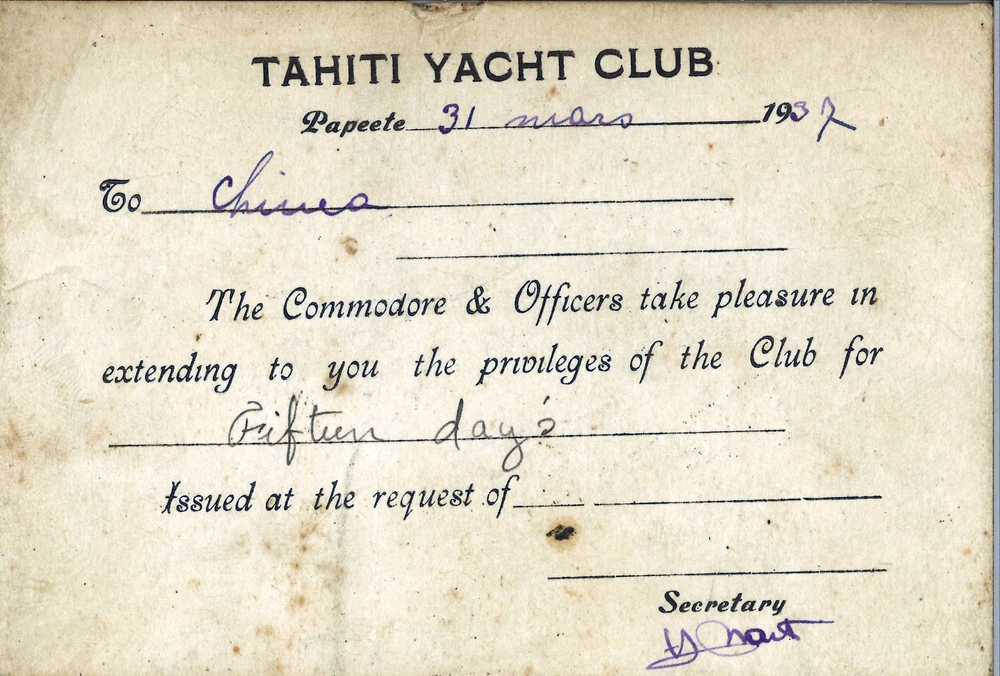 TAHITI YACHT CLUB
Papeete 31 mars 1937
To Chinea
The Commodore & Officers take pleasure in
extending to you the privileges of the Club for
Fifteen day's
Issued at the request of
Secretary